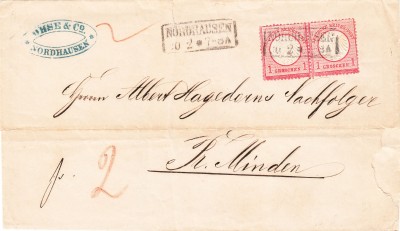 OHSE & Co.
NORDHAUSEN
NORDHAUSEN
10 2 * 7-8A
NORDHAUSEN
10 2
1 GROSCHEN 1
1 GROSCHEN 1
Herrn Albert Hagedorns Nachfolger
Pr. Minden
fr.
2